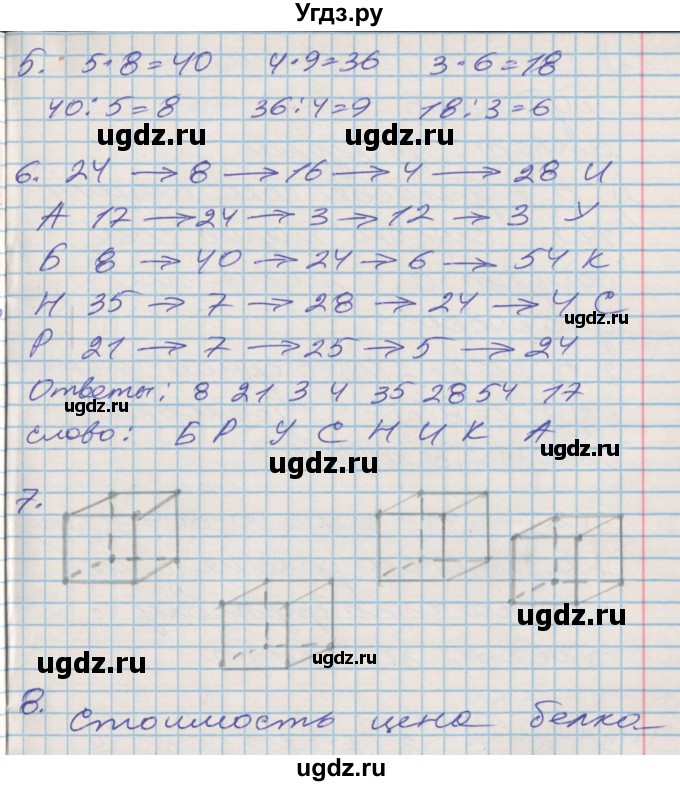 Угдз.ру
5. 5·8=40 4·9=36 3·6=18
40:5=8 36:4=9 18:3=6
ugdz.ru ugdz.ru
6. 24→8→16→4→28 И
А 17→24→3→12→3 У
Б 8→40→24→6→54 К
Н 35→7→28→24→4 С
ugdz.ru
Р 21→7→25→5→24
Ответы: 8 21 3 4 35 28 54 17
ugdz.ru
слово: Б Р У С Н И К А
ugdz.ru
7.
ugdz.ru
ugdz.ru ugdz.ru
8. Стоимость цена белка
ugdz.ru